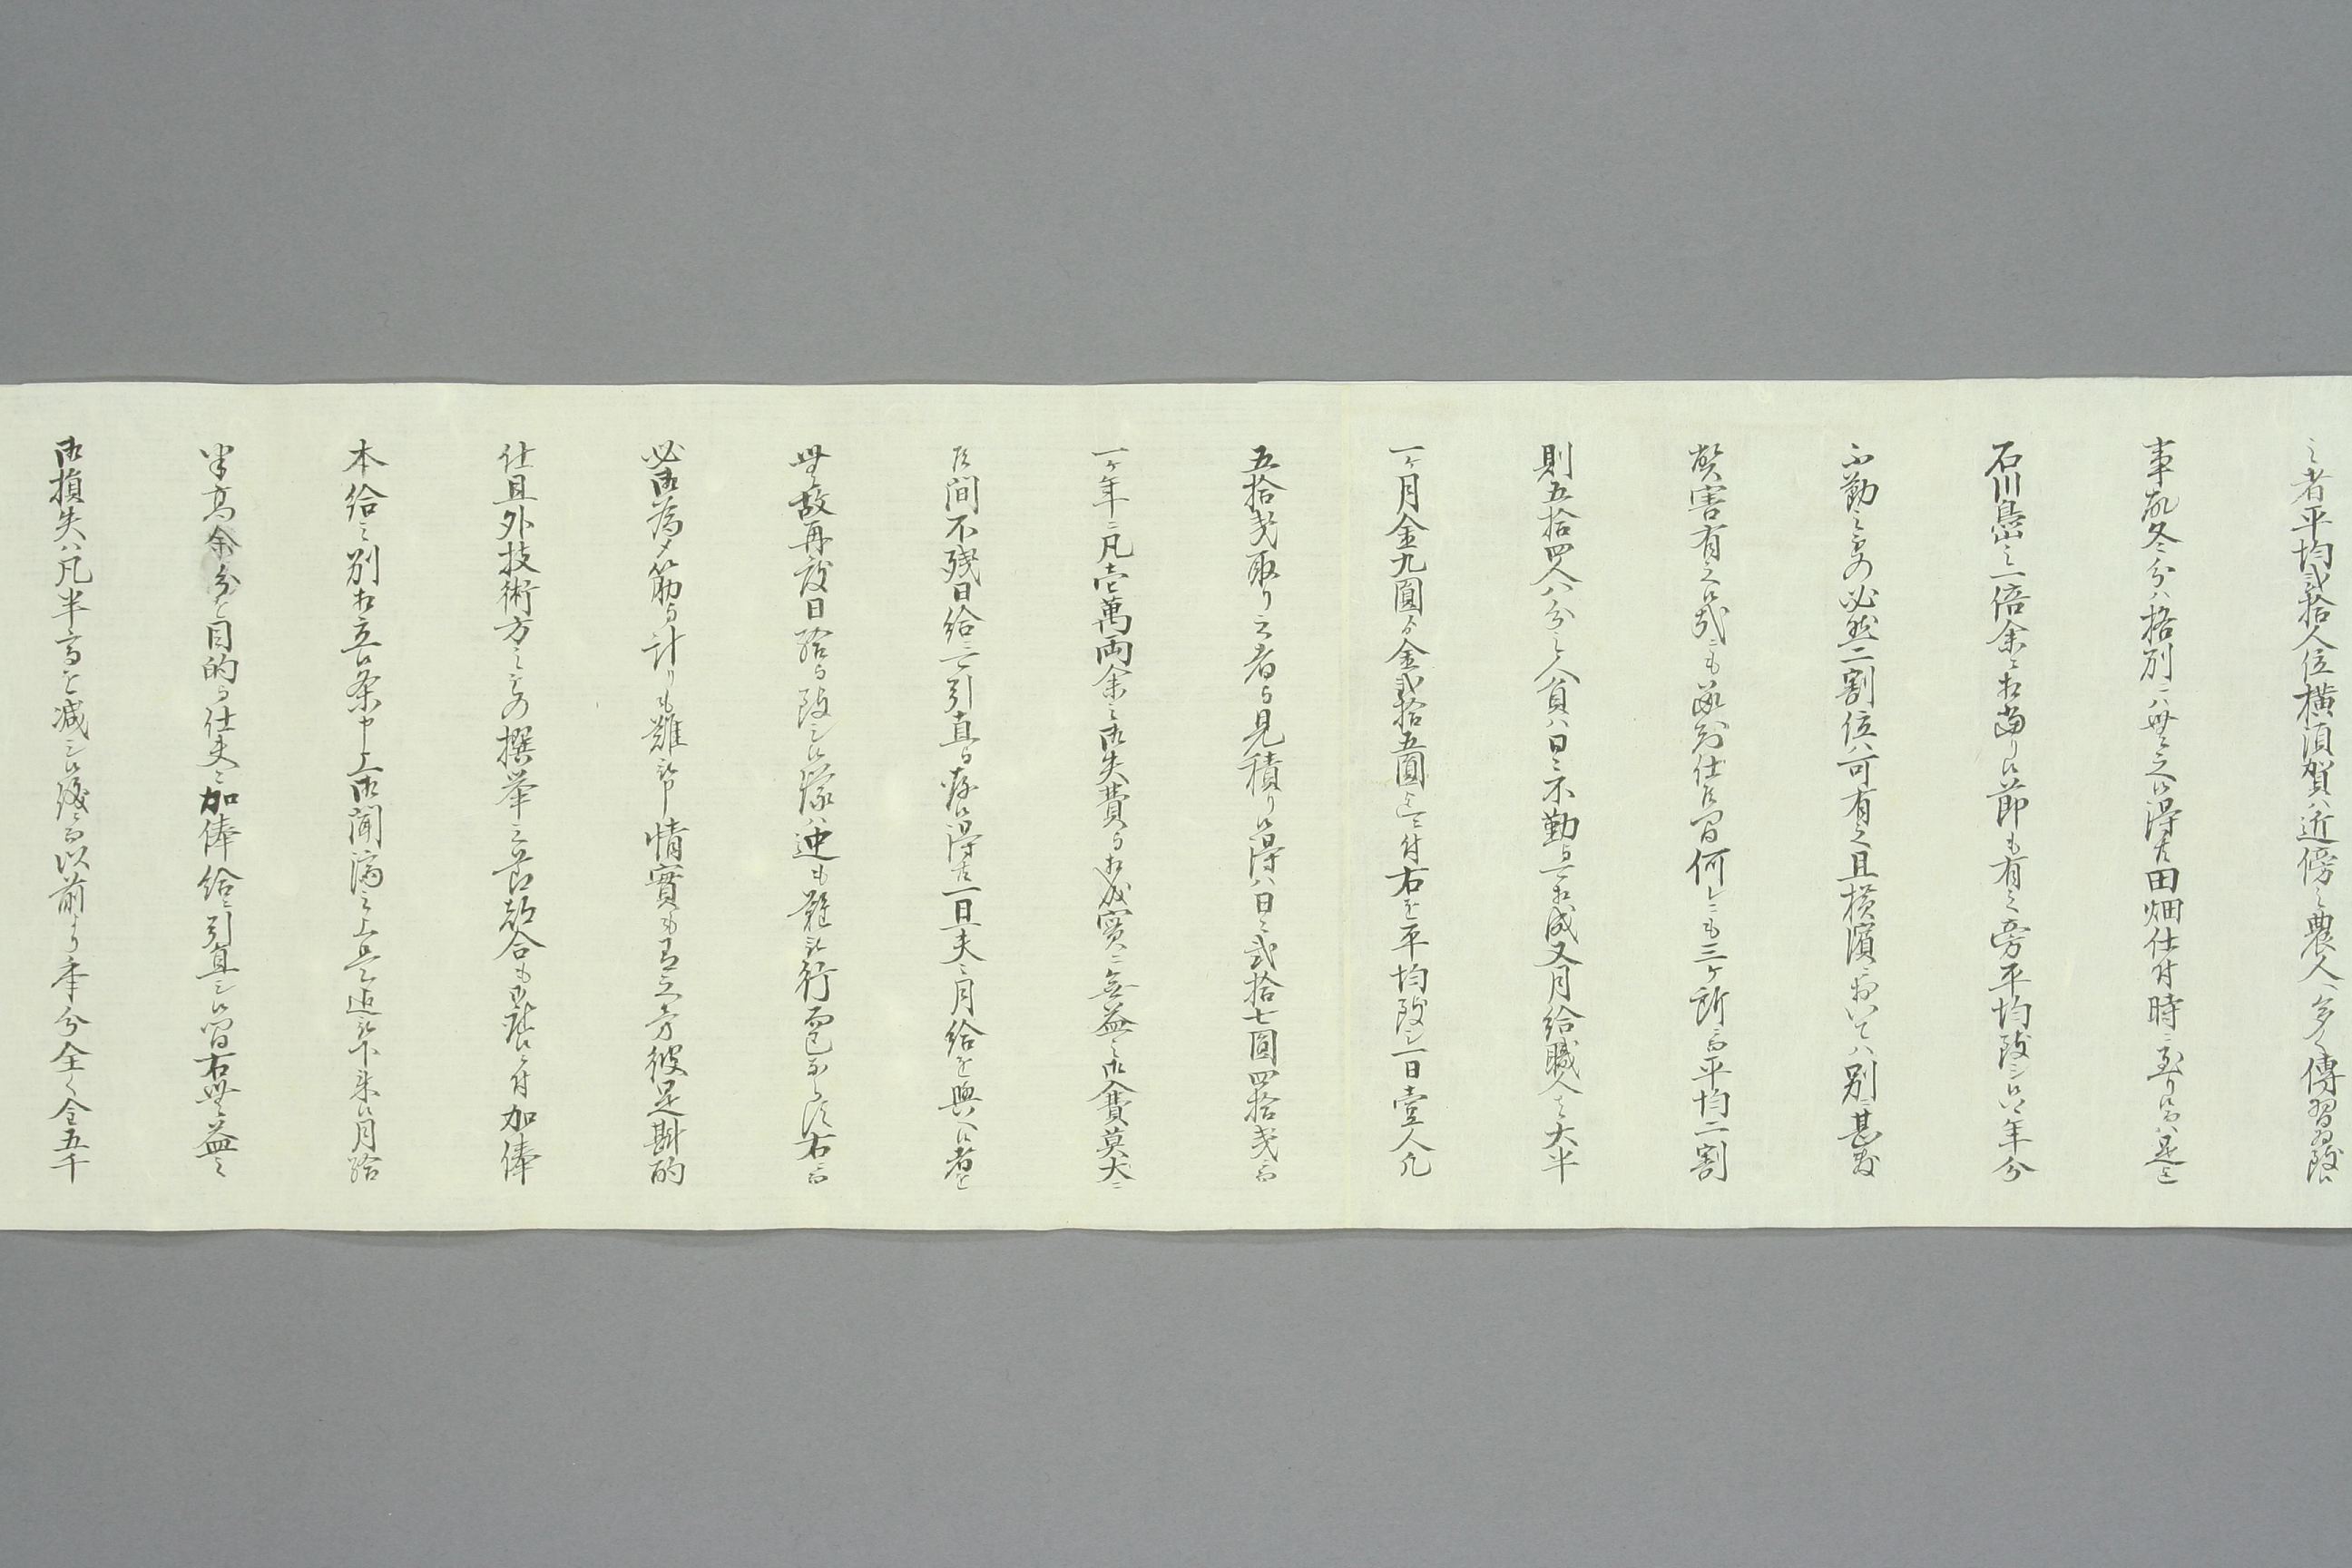 之者平均弐拾人位横須賀ハ近傍之農人多く傳習為致候
事故冬分ハ格別ニハ無之候得共田畑仕付時ニ至り候而ハ是上
石川島之一倍余ニ相当り候節も有之旁平均致シ候ハヽ年分
不勤之もの必然二割位ハ可有之且横濱ニおいてハ別ニ甚敷
弊害有之候哉ニも承知仕候間何レニも三ヶ所ニ而平均二割
則五拾四人八分之人負ハ日々不勤与相成又月給職人之大半
一ヶ月金九圓ゟ金弐拾五圓迄ニ付右を平均致シ一日壹人凡
五拾銭取り之者与見積り候得ハ日々弐拾七圓四拾銭ニ而
一ヶ年ニ凡壱萬両余之御失費与相成實ニ無益之御入費莫大ニ
候間不残日給ニ引直与存候得共一旦夫々月給を與へ候者を
無故再度日給与致シ候様ハ迚も難被行而已ならす右ニ而
必御為メ筋与計りも難申情實も有之旁彼是斟酌
仕且外技術方之もの撰挙之節都合も有之候ニ付加俸
本給之別相立候条申上御聞済之上是迄被下来候月給
半高余分を目的与仕夫々加俸給ニ引直シ候間右無益之
御損失ハ凡半高を減シ候後ニ而以前より季分全く金五千